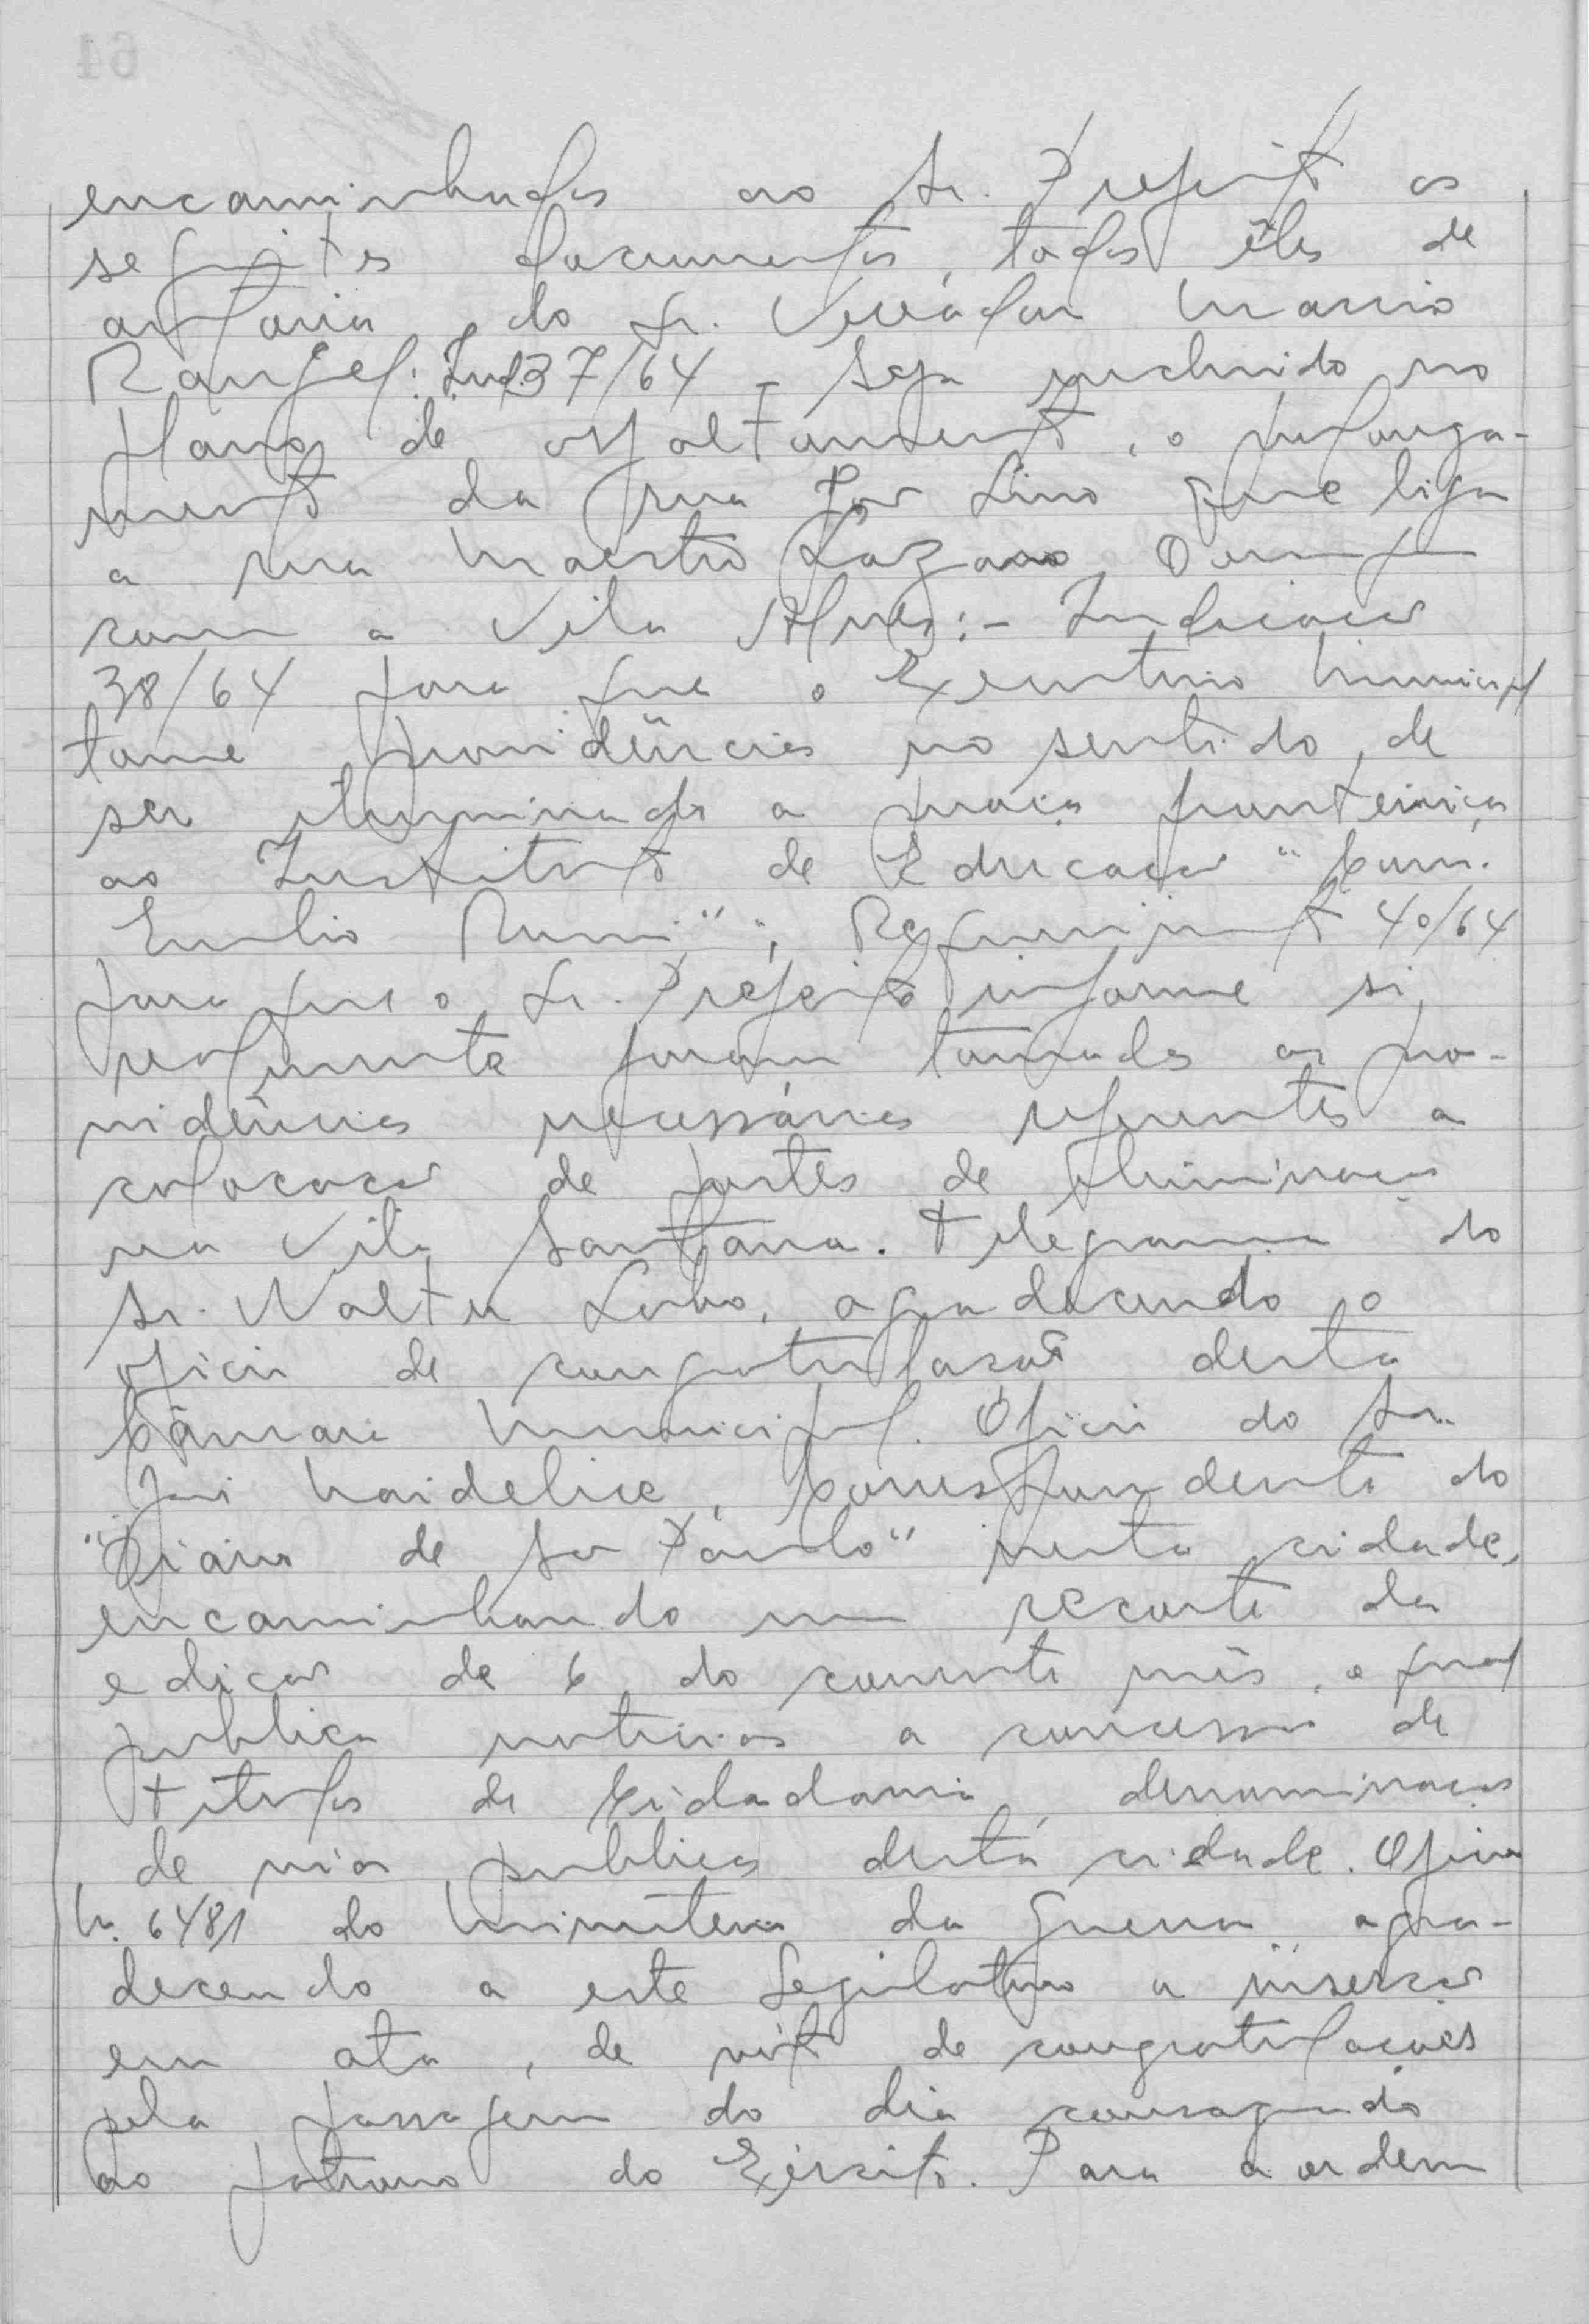 encaminhados ao Sr. Prefeito os
seguintes documentos, todos êles de
autoria do Sr. Vereador Mario
Rangel: Ind. 37/64 - Seja incluido no
plano de asfaltamento, o prolonga-
mento da rua José Lino que liga
a rua Maestro Lazaro
com a Vila Alves:- Indicacao
38/64 para que o Executivo Municipal
tome providências no sentido de
ser iluminada a praça fronteiriça
ao Instituto de Educacao "Com.
Emilio Rumi"; Requerimento 40/64
para que o Sr. Prefeito informe si
realmente foram tomadas as pro-
vidências necessárias referentes a
colocacao de postes de iluminacao
na Vila Santana. Telegrama do
Sr. Walter Lobo, agradecendo o
oficio de congratulação desta
Câmara Municipal. Oficio do Sr.
Correspondente do
"Diário de Sao Paulo" nesta cidade,
encaminhando um recorte da
edicao de 6 do corrente mês, o qual
publica noticias a concessao de
titulos de Cidadania, denominacao
de vias publicas desta cidade. Oficio
n. 6481 do Ministerio da Guerra agra-
decendo a este Legislativo a insercao
em ata, de voto de congratulações
pela passagem do dia consagrado
ao patrono do Exército. Para a ordem
64